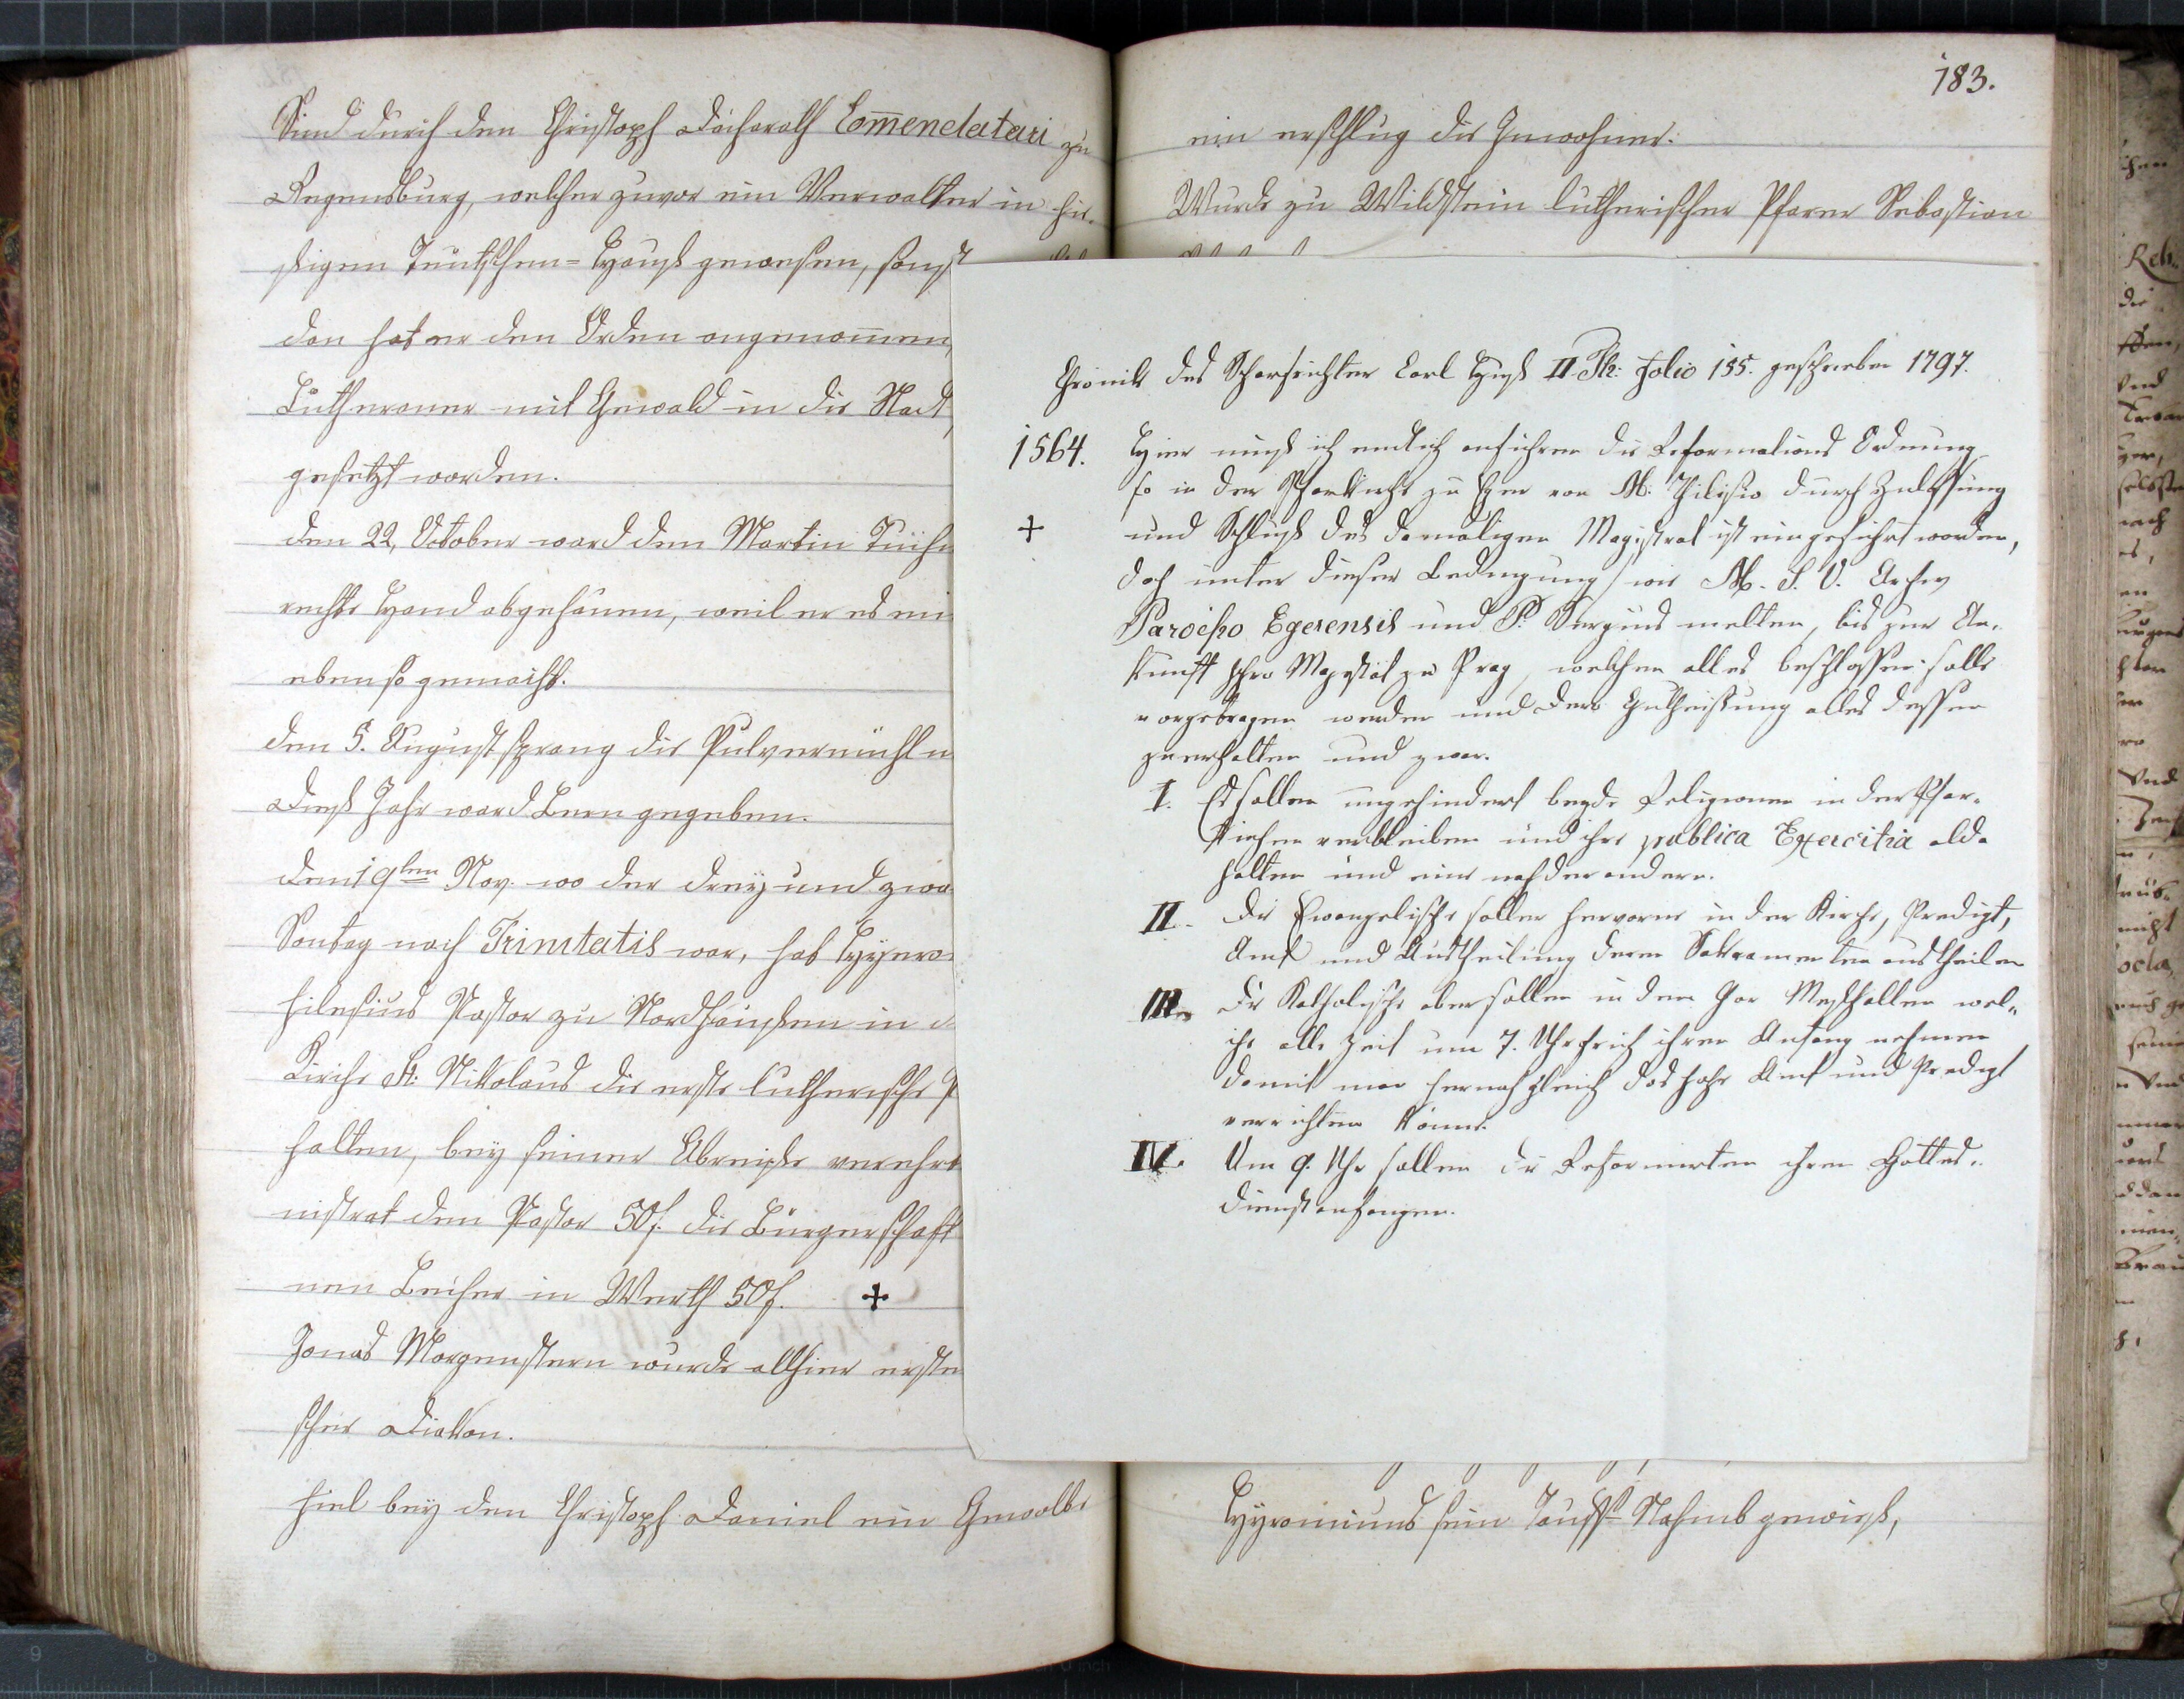 Sind durch den Christoph Dächarath Com̄endatari zu
Regensburg, welcher zuvor ein Verwalter in hie-
sigen Teutschen-Hauß gewesen, sonst
den hat er den Orden angenom̄en,
Lutheraner mit Gewald in die Stadt
gesetzt worden.
den 22, October ward dem Martin
rechte Hand abgehauen, weil er es
ebenso gemacht.
den 5. August sprang die Pulvermühl
Dieß Jahr ward Leen gegeben.
den 19ten Nov. wo der drey und
Sontag nach Trinitatis war, hat
hilesius Pastor zu Nordhausen in
Kirche St: Nikolaus die erste lutherische
halten, bey seiner Abreiße verehrt
nistrat dem Pastor 50f. die Bürgerschaft
nen Becher in Werth 50f. +
Jonas Morgenstern wurde allhier erster
scher Diakon.
Fiel bey den Christoph Daniel ein Gewölbe
183.
ein erschlug die Inwohner.
Wurde zu Wildstein lutherischer Pfarrer Sebastian
Chronik des Scharfrichter Carl Huß II Th: Folio 155. geschrieben 1797.
1564. Hier muß ich endlich anführen die Reformations Ordnung
so in der Pfarkirche zu Eger von M. Hilesio durch Zulassung
+ und Schluß des damaligen Magistrat ist eingeführt worden,
doch unter dieser Bedingung/ wie M. S. V. Archiv
Parocho Egerensis und P. Sergius melten, bis zur An-
kunft Ihro Magestät zu Prag, welchen alles beschlossene solle
vorgetragen werden und dero Gutheissung alles dessen
zu erhalten und zwar.
I. Es sollen ungehindert beyde Religionen in der Pfar-
kirchen verbleiben und ihre publica Exercitia alda
halten und eine nach der andern.
II. Die Ewangelische sollen hervorne in der Kirche, Predigt,
Amt und Austheilung deren Sakramenten austheilen
III. Die Katholische aber sollen in dem Chor Meß halten wel-
che alle Zeit um 7. Uhr früh ihren Anfang nehmen
damit man hernach gleich das hohe Amt und Predigt
verrichten könne.
IV. Um 9. Uhr sollen die Reformirten ihren Gottes-
dienst anfangen.
Hyronimus sein Tauff Nahmb geweßt,